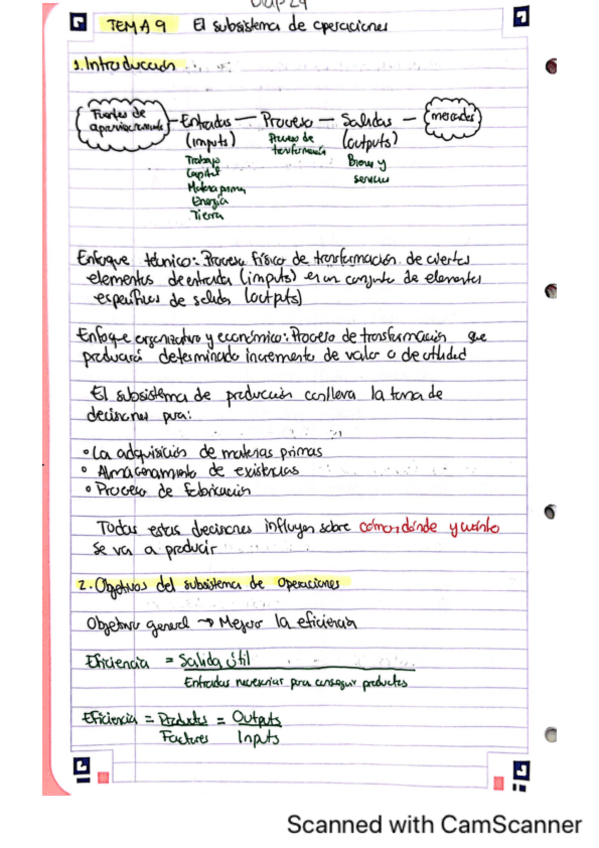 TEMA 9 El subsistema de operaciones
1. Introducción
Fuentes de aprovisionamiento — Entradas — Proceso — Salidas — mercados
(imputs) Proceso de transformación (outputs)
Trabajo Bienes y
Capital servicios
Materia prima
Energía
Tierra
Enfoque técnico: Proceso físico de transformación de ciertos
elementos de entrada (imputs) en un conjunto de elementos
específicos de salida (outputs)
Enfoque organizativo y económico: Proceso de transformación que
producirá determinado incremento de valor o de utilidad
El subsistema de producción conlleva la toma de
decisiones para:
• La adquisición de materias primas
• Almacenamiento de existencias
• Proceso de fabricación
Todas estas decisiones influyen sobre cómo, dónde y cuánto
se va a producir
2. Objetivos del subsistema de Operaciones
Objetivo general → Mejorar la eficiencia
Eficiencia = Salida útil
Entradas necesarias para conseguir productos
Eficiencia = Productos = Outputs
Factores Inputs
Scanned with CamScanner